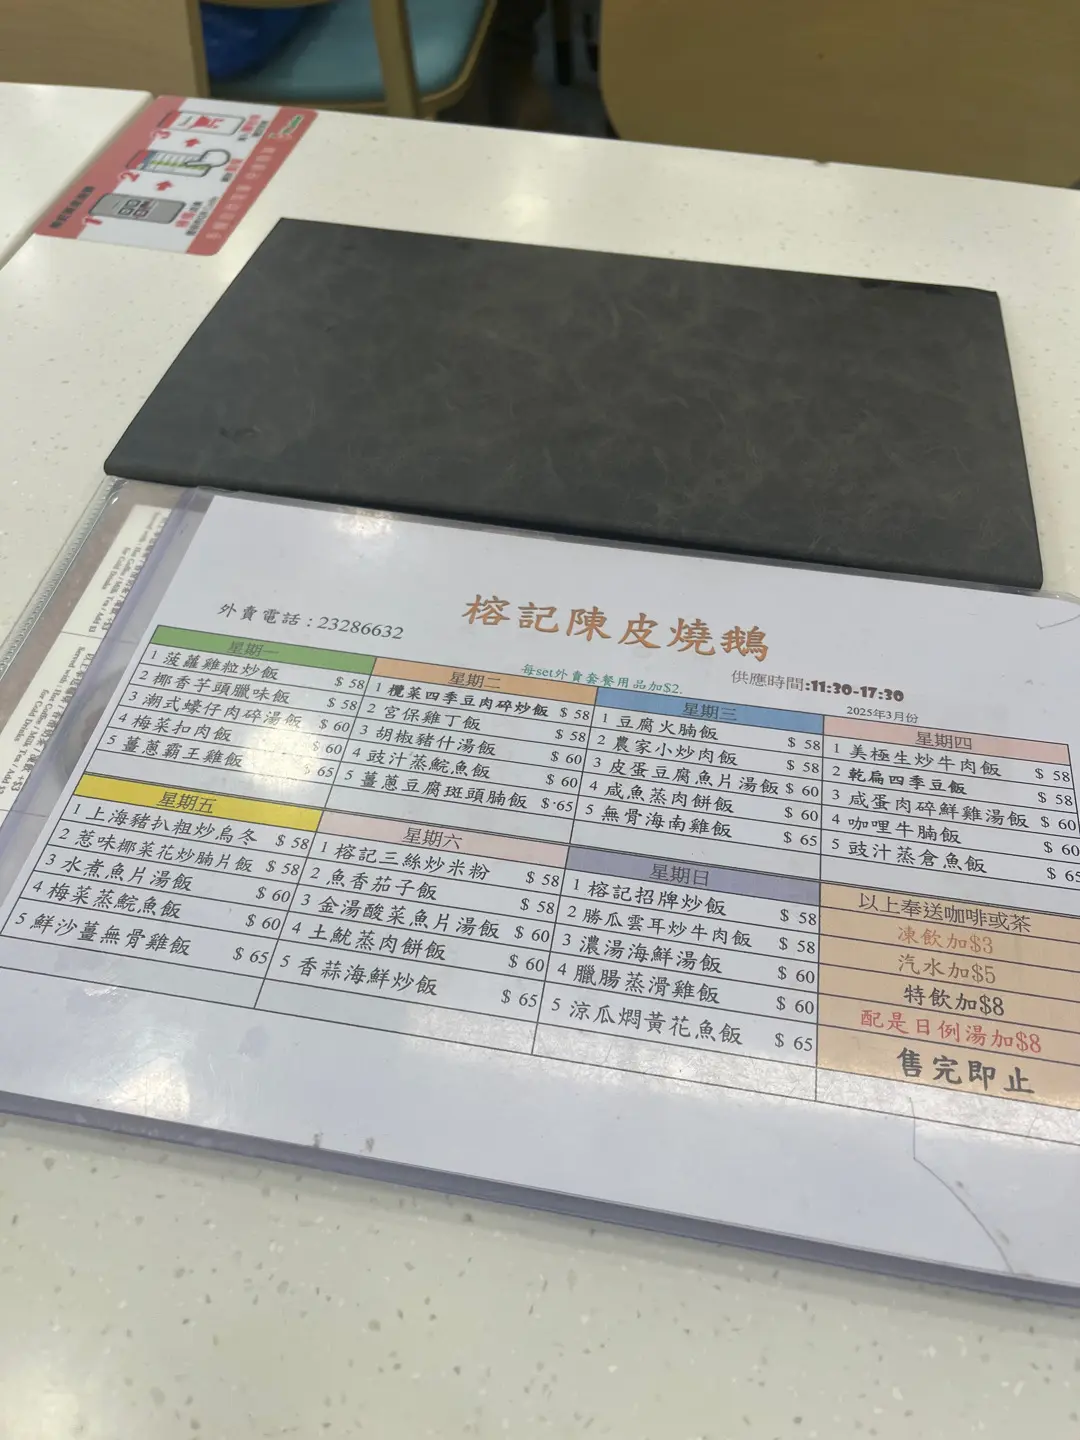 1
2
3
榕記陳皮燒鵝
外賣電話：23286632
每set外賣套餐用品加$2.
供應時間:11:30-17:30
2025年3月份
星期一
1 菠蘿雞粒炒飯 $ 58
2 椰香芋頭臘味飯 $ 58
3 潮式蠔仔肉碎湯飯 $ 60
4 梅菜扣肉飯 $ 60
5 薑蔥霸王雞飯 $ 65
星期二
1 欖菜四季豆肉碎炒飯 $ 58
2 宮保雞丁飯 $ 58
3 胡椒豬什湯飯 $ 60
4 豉汁蒸鯇魚飯 $ 60
5 薑蔥豆腐斑頭腩飯 $ 65
星期三
1 豆腐火腩飯 $ 58
2 農家小炒肉飯 $ 58
3 皮蛋豆腐魚片湯飯 $ 60
4 咸魚蒸肉餅飯 $ 60
5 無骨海南雞飯 $ 65
星期四
1 美極生炒牛肉飯 $ 58
2 乾扁四季豆飯 $ 58
3 咸蛋肉碎鮮雞湯飯 $ 60
4 咖哩牛腩飯 $ 60
5 豉汁蒸倉魚飯 $ 65
星期五
1 上海豬扒粗炒烏冬 $ 58
2 惹味椰菜花炒腩片飯 $ 58
3 水煮魚片湯飯 $ 60
4 梅菜蒸鯇魚飯 $ 60
5 鮮沙薑無骨雞飯 $ 65
星期六
1 榕記三絲炒米粉 $ 58
2 魚香茄子飯 $ 58
3 金湯酸菜魚片湯飯 $ 60
4 土魷蒸肉餅飯 $ 60
5 香蒜海鮮炒飯 $ 65
星期日
1 榕記招牌炒飯 $ 58
2 勝瓜雲耳炒牛肉飯 $ 58
3 濃湯海鮮湯飯 $ 60
4 臘腸蒸滑雞飯 $ 60
5 涼瓜燜黃花魚飯 $ 65
以上奉送咖啡或茶
凍飲加$3
汽水加$5
特飲加$8
配是日例湯加$8
售完即止